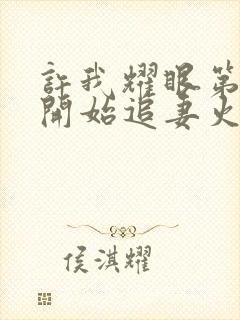 許我耀眼第
開始追妻火
侯淇耀